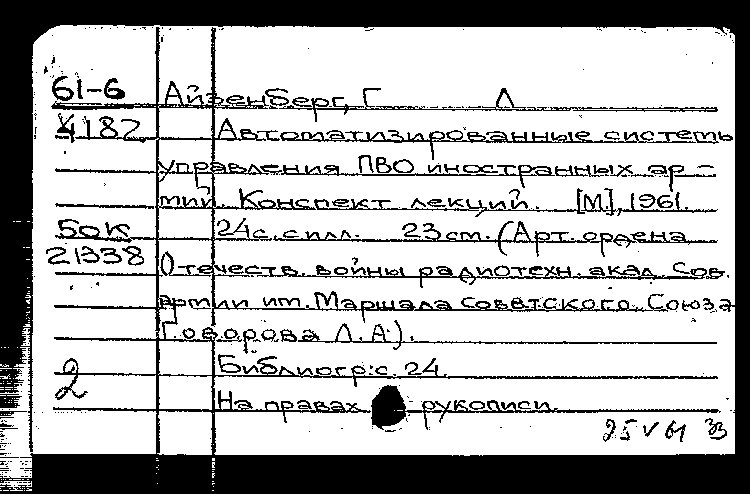 61-6 Айзенберг, Г Л
4182 Автоматизированные системы
управления ПВО иностранных ар-
мий. Конспект лекций. [М], 1961.
БОК 24с. с илл. 23 см. (Арт. ордена
21338 Отечеств. войны радиотехн. акад. Сов.
армии им. Маршала Советского Союза
Говорова Л. А.).
Библиогр: с. 24.
2 На правах рукописи.
25 V 61 33